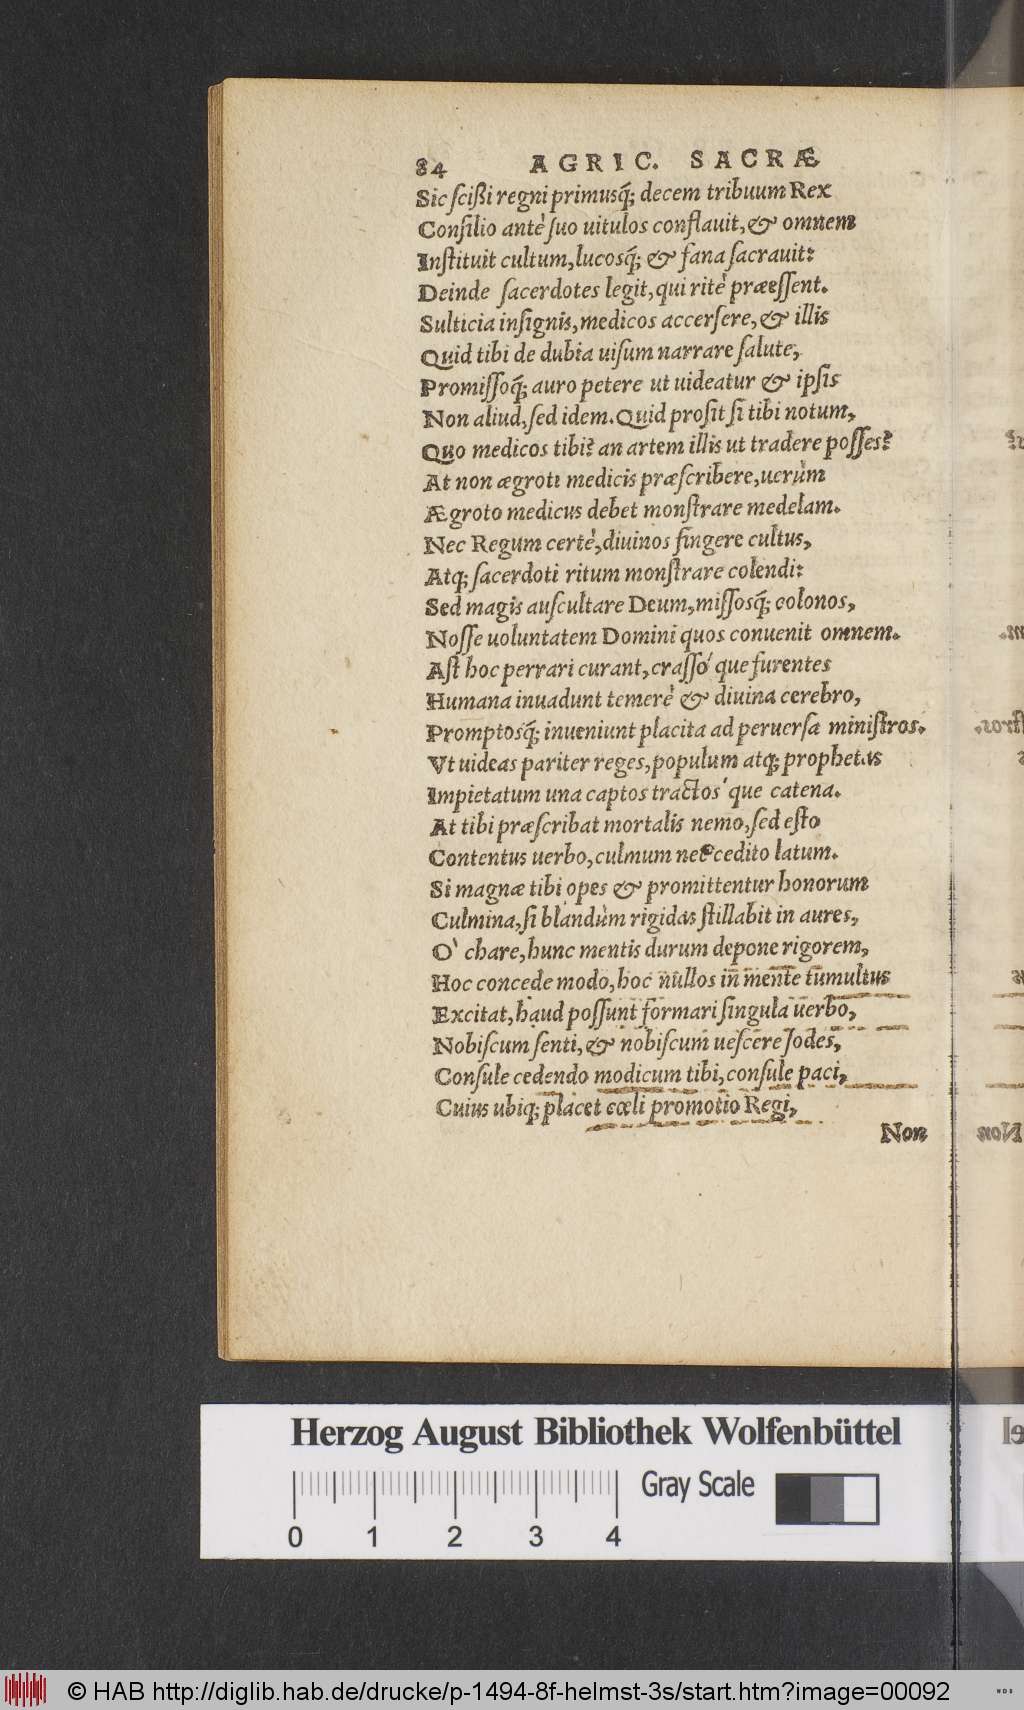 84 AGRIC. SACRÆ
Sic ſcißi regni primusq́; decem tribuum Rex
Conſilio antè ſuo uitulos conflauit, & omnem
Inſtituit cultum, lucosq́; & fana ſacrauit:
Deinde ſacerdotes legit, qui ritè præeſſent.
Sulticia inſignis, medicos accerſere, & illis
Quid tibi de dubia uiſum narrare ſalute,
Promiſſoq́; auro petere ut uideatur & ipſis
Non aliud, ſed idem. Quid proſit ſi tibi notum,
Quo medicos tibi? an artem illis ut tradere poſſes?
At non ægroti medicis præſcribere, uerùm
Ægroto medicus debet monſtrare medelam.
Nec Regum certè, diuinos fingere cultus,
Atq; ſacerdoti ritum monſtrare colendi:
Sed magis auſcultare Deum, miſſosq́; colonos,
Noſſe uoluntatem Domini quos conuenit omnem.
Aſt hoc perrari curant, craſſó que furentes
Humana inuadunt temerè & diuina cerebro,
Promptosq́; inueniunt placita ad peruerſa miniſtros.
Vt uideas pariter reges, populum atq; prophetas
Impietatum una captos tractos´que catena.
At tibi præſcribat mortalis nemo, ſed eſto
Contentus uerbo, culmum nec cedito latum.
Si magnæ tibi opes & promittentur honorum
Culmina, ſi blandùm rigidas ſtillabit in aures,
O` chare, hunc mentis durum depone rigorem,
Hoc concede modo, hoc nullos in mente tumultus
Excitat, haud poſſunt formari ſingula uerbo,
Nobiſcum ſenti, & nobiſcum ueſcere Jodes,
Conſule cedendo modicum tibi, conſule paci,
Cuius ubiq; placet cœli promotio Regi,
Non
Herzog August Bibliothek Wolfenbüttel
Gray Scale
0 1 2 3 4
© HAB http://diglib.hab.de/drucke/p-1494-8f-helmst-3s/start.htm?image=00092